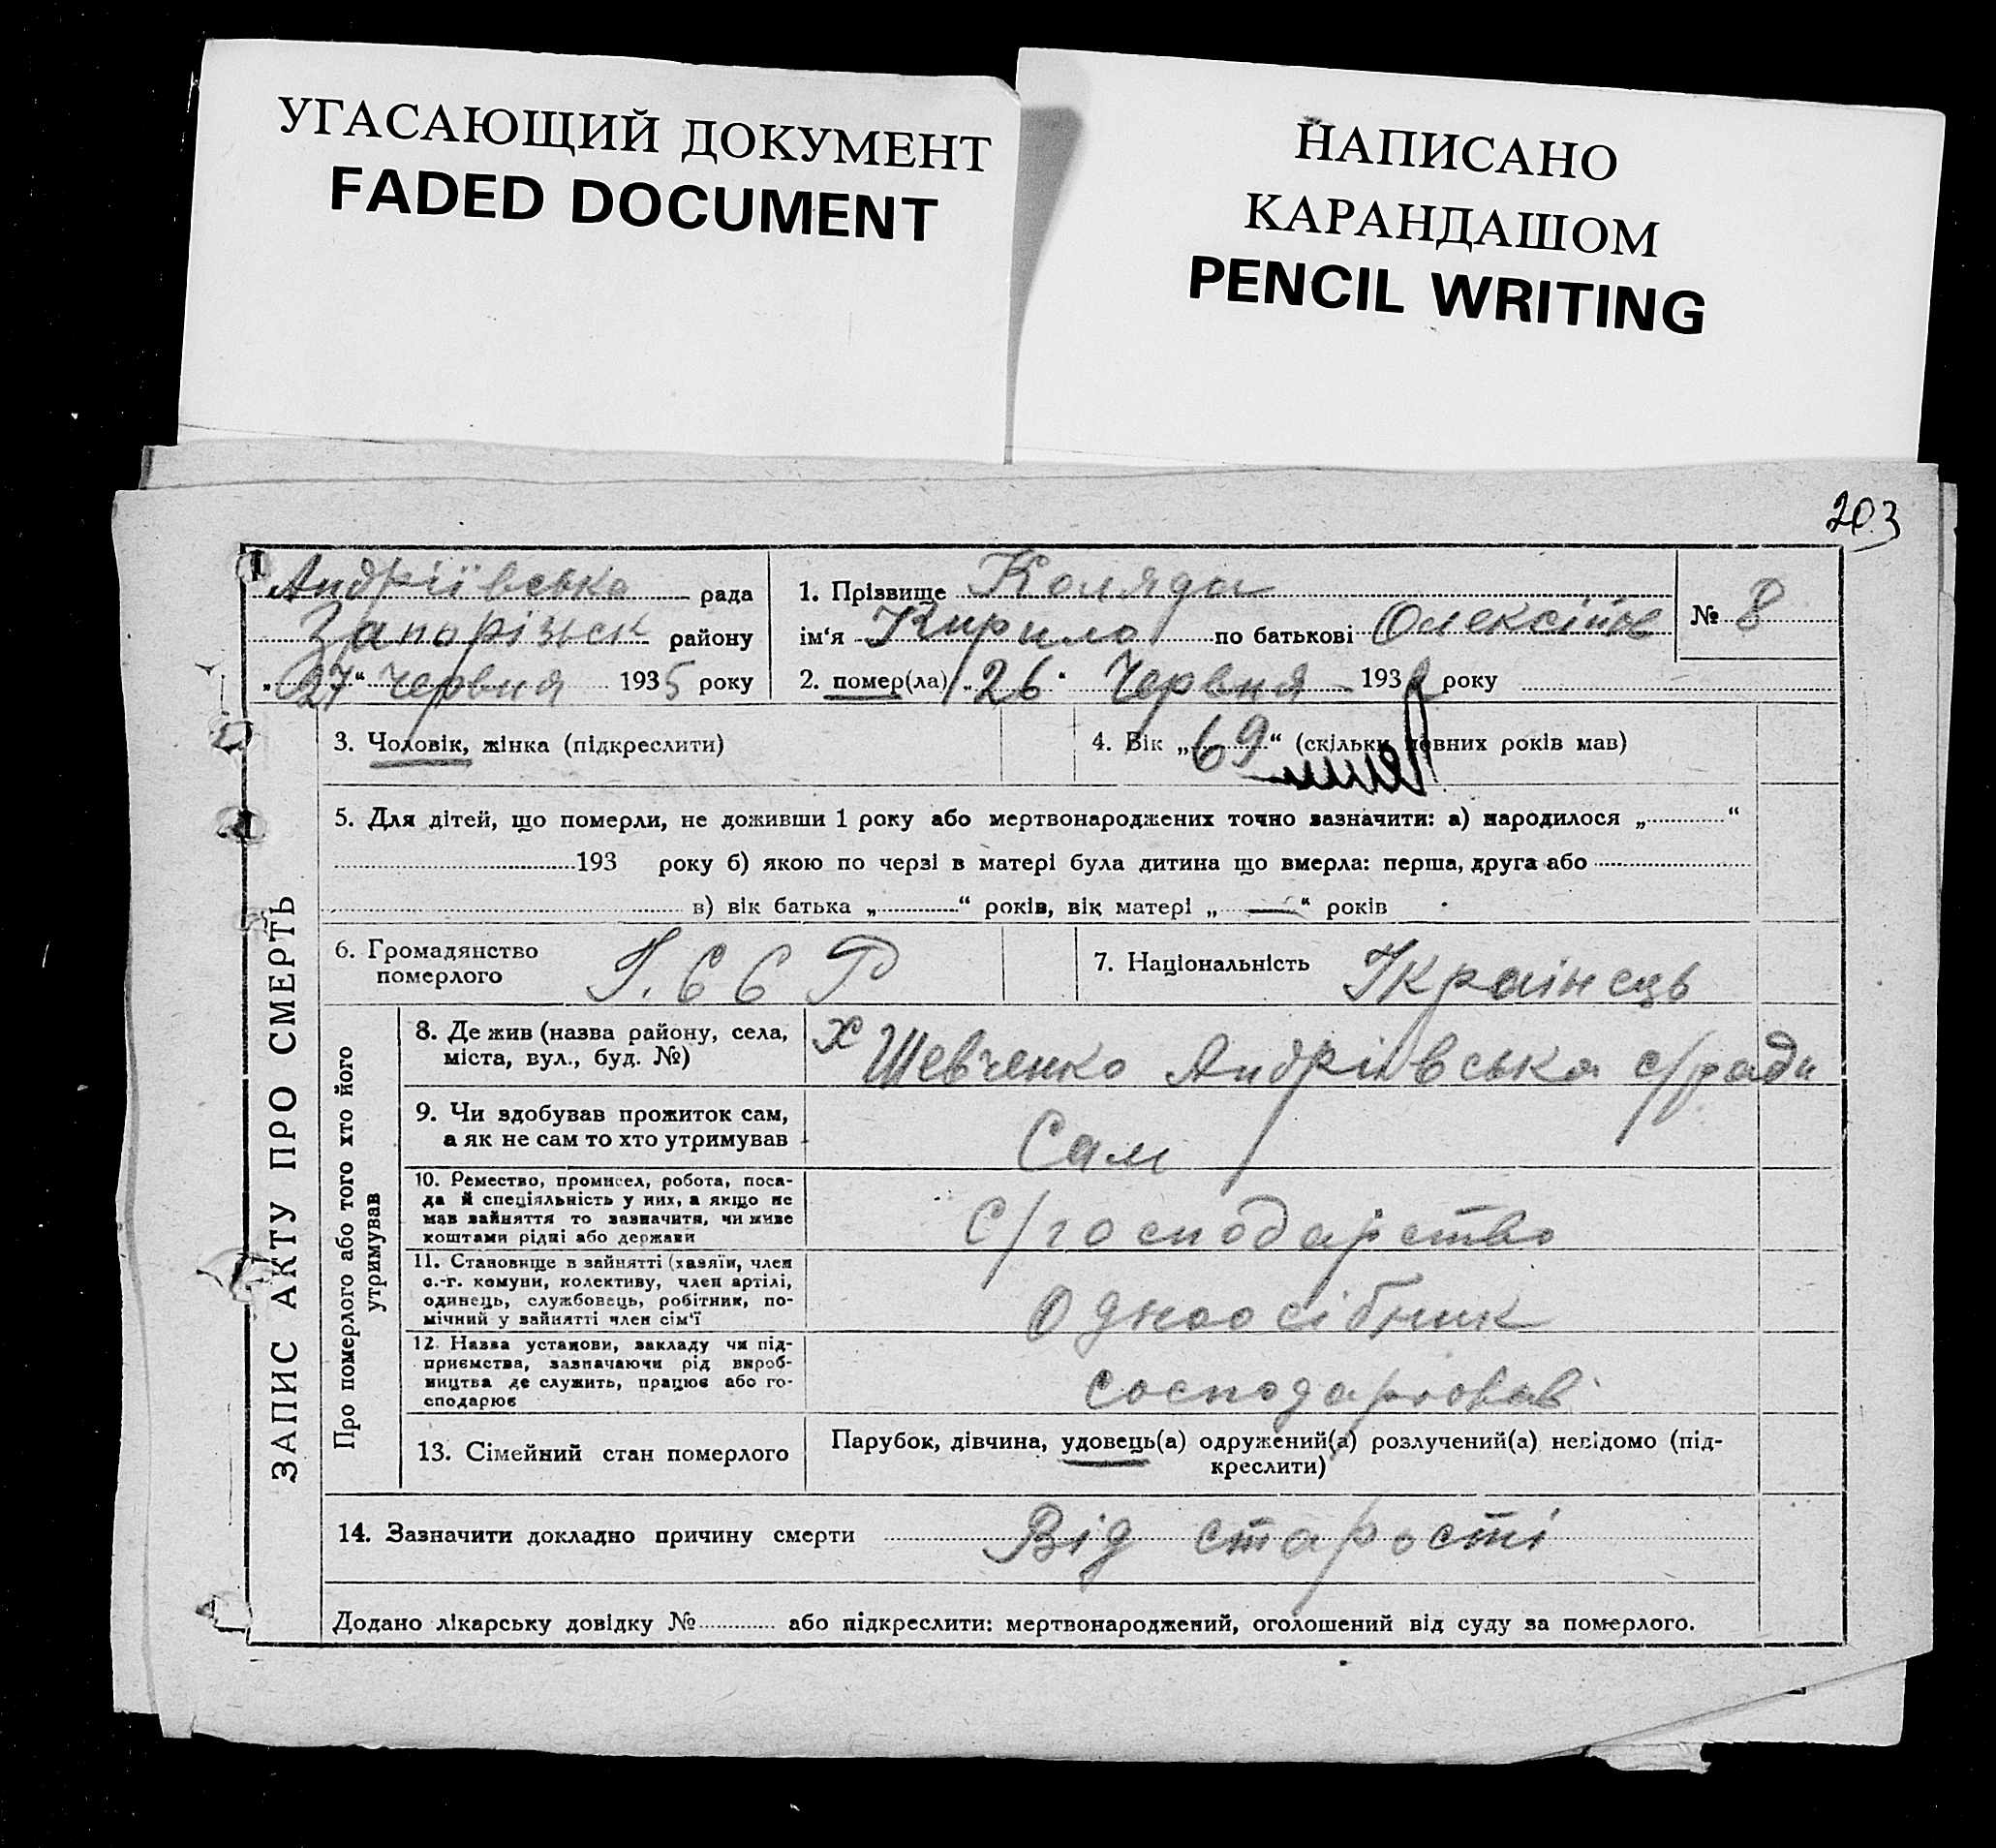 УГАСАЮЩИЙ ДОКУМЕНТ
FADED DOCUMENT
НАПИСАНО
КАРАНДАШОМ
PENCIL WRITING
203
Андріївська рада
Запоріжск району
„27“ червня 1935 року
1. Прізвище Коляда
ім‘я Кирило по батькові Олексійов
2. помер(ла) „26“ Червня 193 року
№ 8
3. Чоловік, жінка (підкреслити)
4. Вік „69“ (скільки повних років мав)
5. Для дітей, що померли, не доживши 1 року або мертвонароджених точно зазначити: а) народилося „ “
193 року б) якою по черзі в матері була дитина що вмерла: перша, друга або
в) вік батька „ “ років, вік матері „ — “ років
6. Громадянство
померлого
У.С С Р
7. Національність Українець
ЗАПИС АКТУ ПРО СМЕРТЬ
Про померлого або того хто його
утримував
8. Де жив (назва району, села,
міста, вул., буд. №)
х Шевченко Андрівська с/ради
9. Чи здобував прожиток сам,
а як не сам то хто утримував
Сам
10. Ремество, промисел, робота, поса-
да й спеціяльність у них, а якщо не
мав зайняття то зазначити, чи живе
коштами рідні або держави
С/господарство
11. Становище в зайнятті (хазяїн, член
с.-г. комуни, колективу, член артілі,
одинець, службовець, робітник, по-
мічний у зайнятті член сім'ї
Одноосібник
12. Назва установи, закладу чи під-
приємства, зазначаючи рід вироб-
ництва де служить, працює або го-
сподарює
господарював
13. Сімейний стан померлого
Парубок, дівчина, удовець(а) одружений(а) розлучений(а) невідомо (під-
креслити)
14. Зазначити докладно причину смерти Від старості
Додано лікарську довідку № або підкреслити: мертвонароджений, оголошений від суду за померлого.